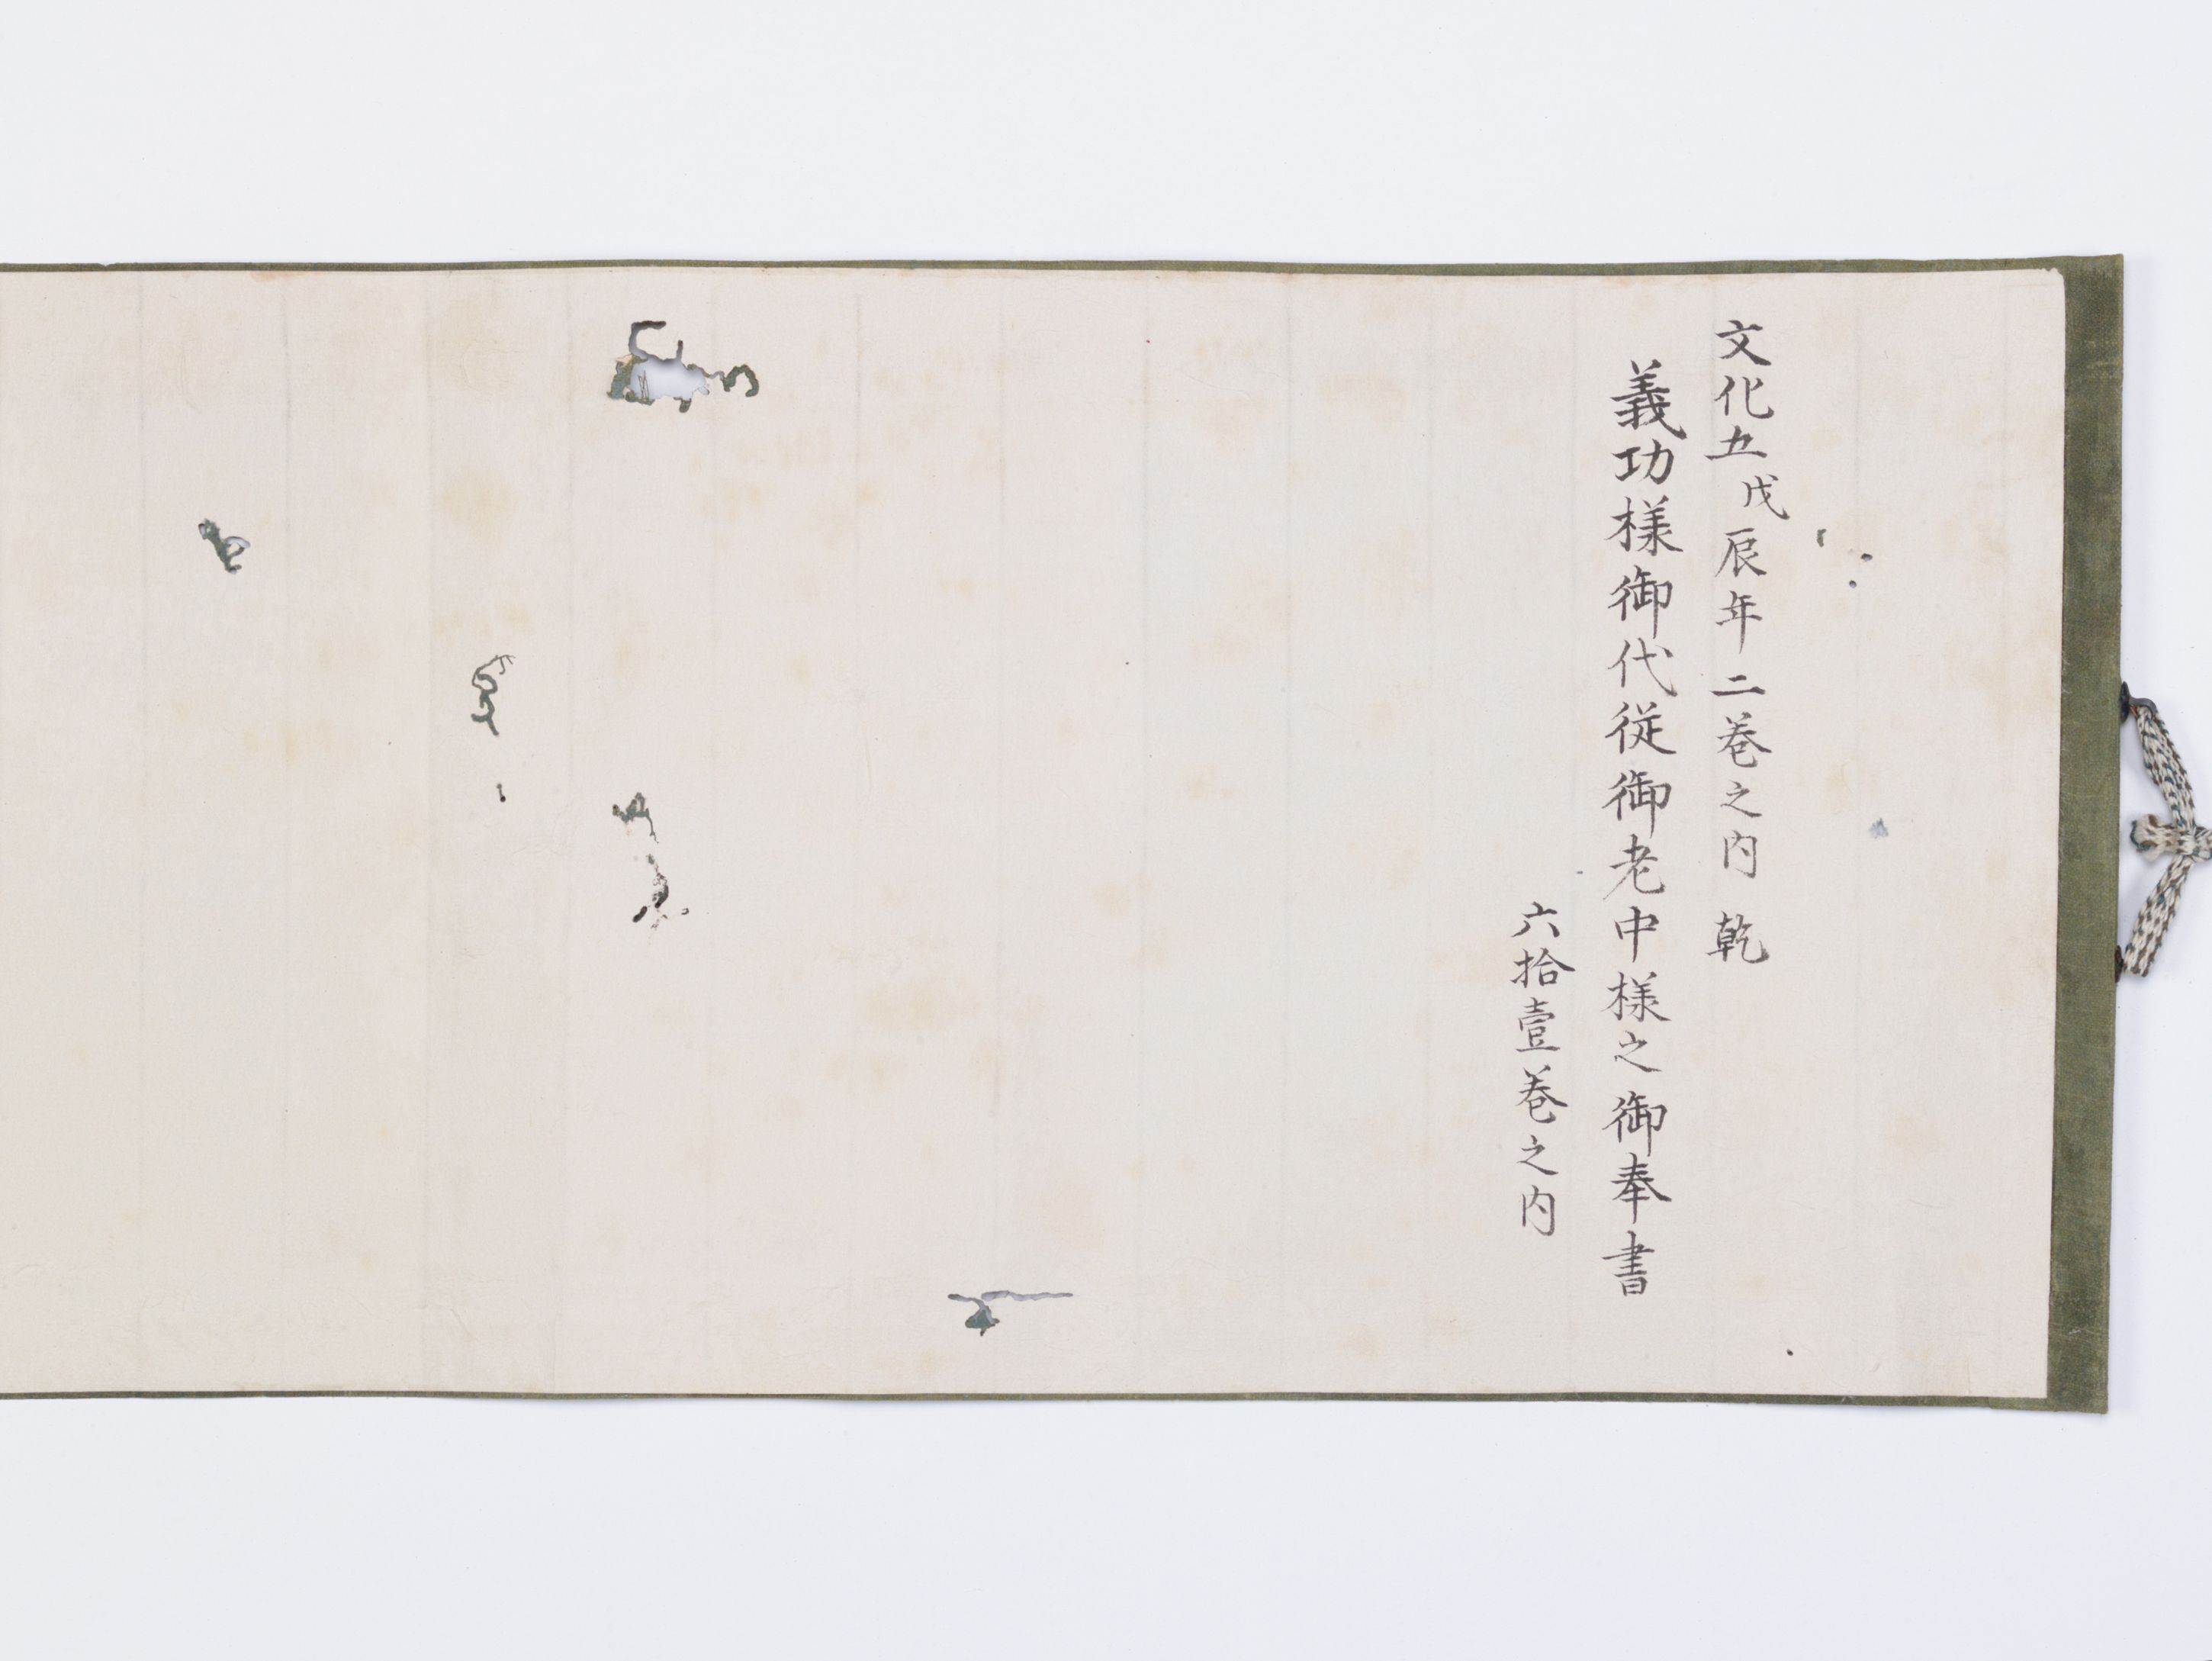 文化五戊辰年二巻之内 乾
義功様御代従御老中様之御奉書
六拾壹巻之内